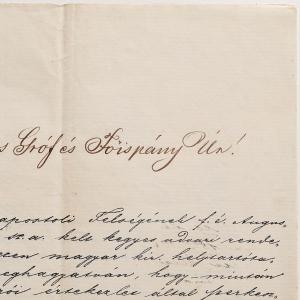 s Gróf és Főispány Úr!
apostoli Felségének f. é. Augus,
sz. a. kelt kegyes udvari rende,
magyar kir. helytartósá,
meghagyatván, hogy miután
értekezlet által